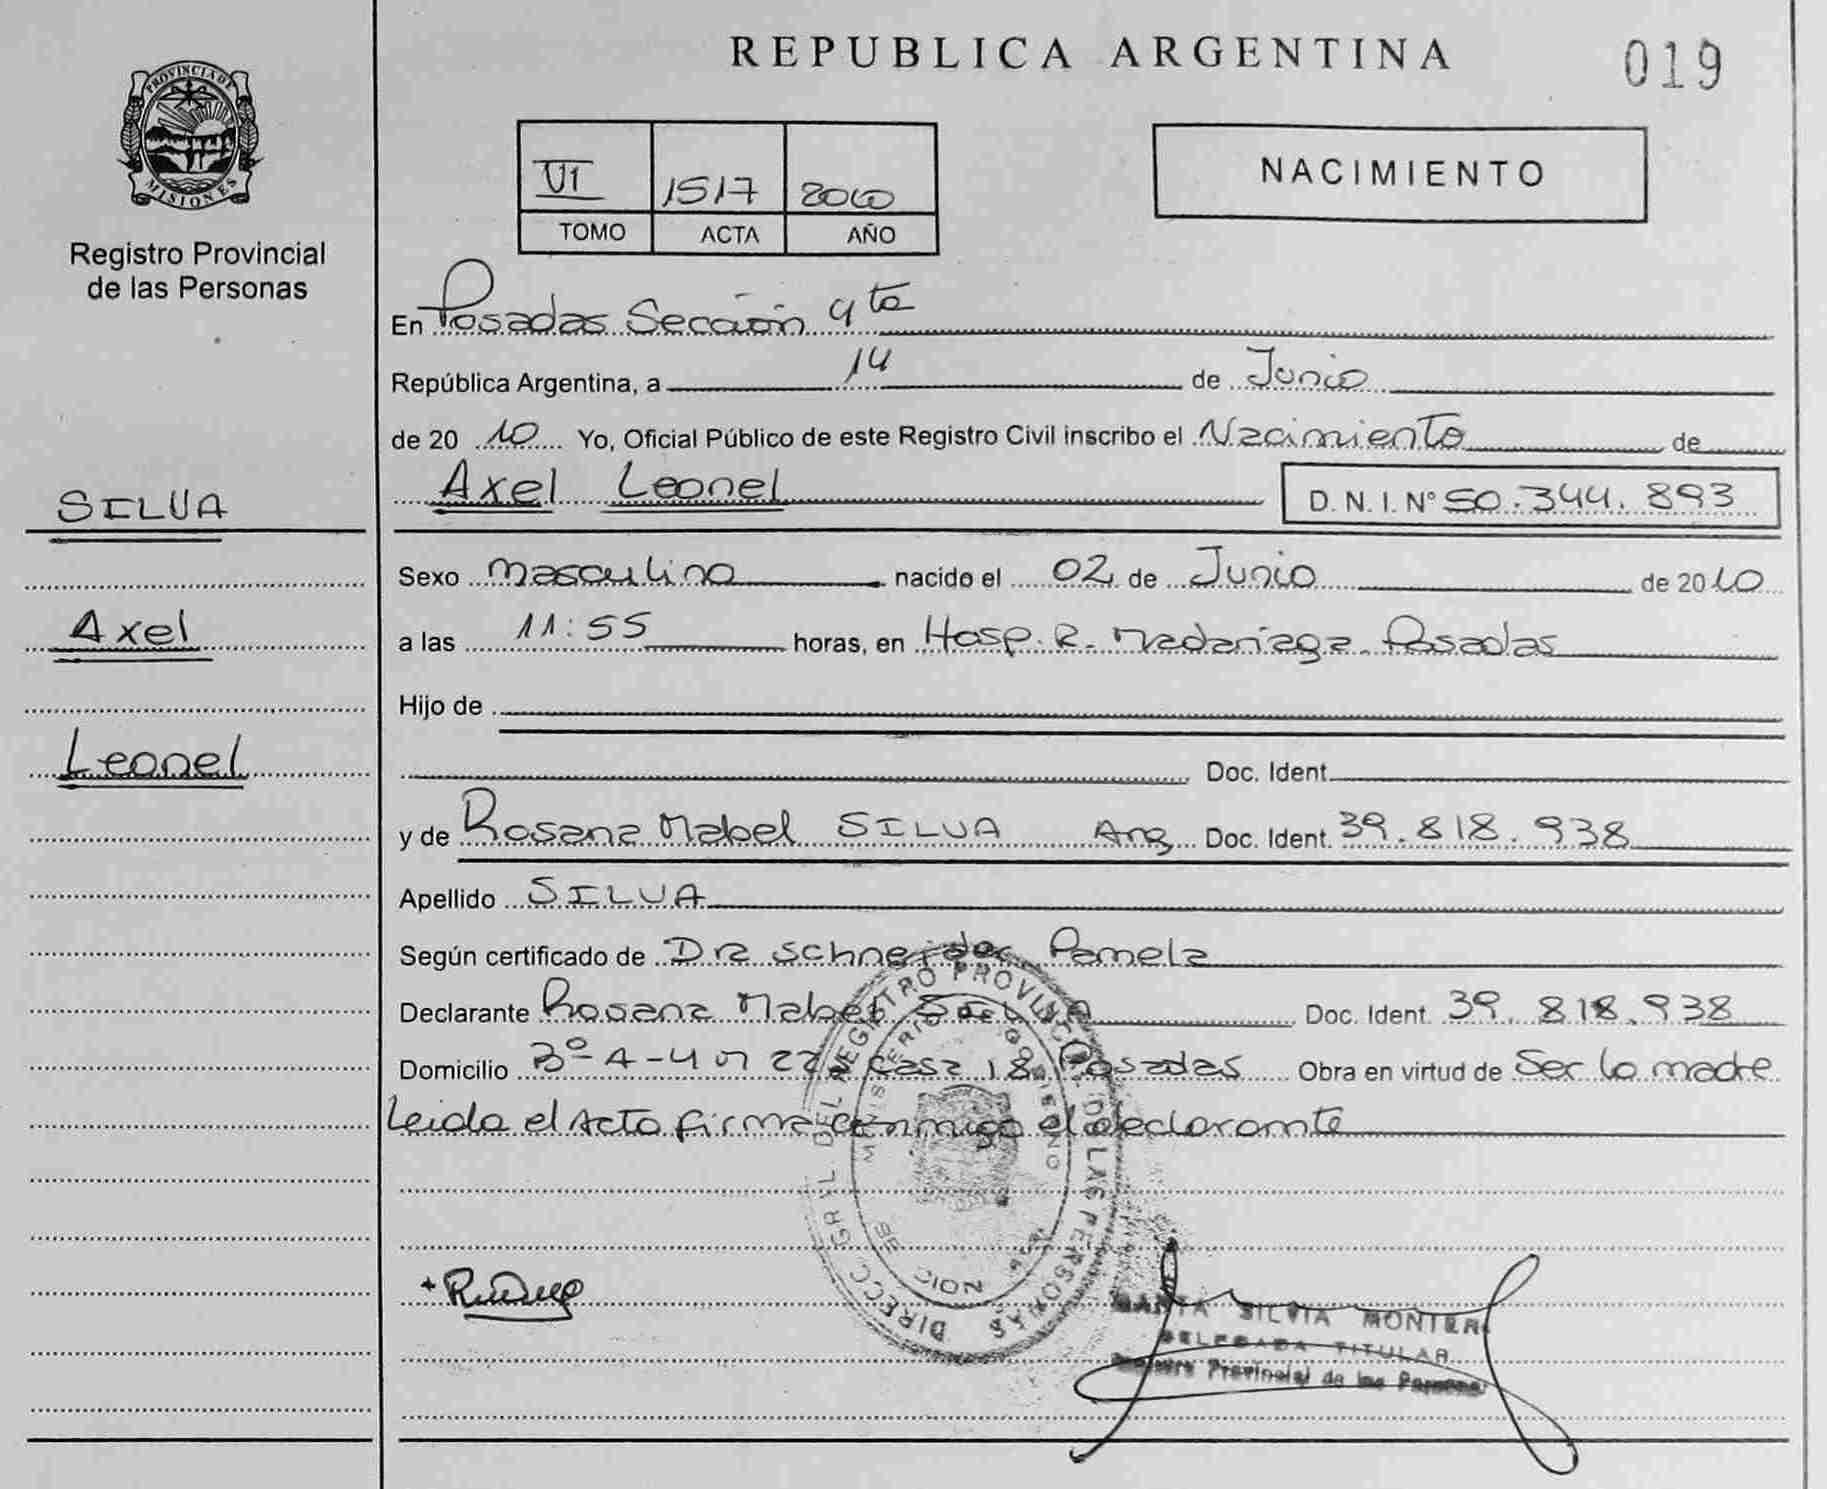 REPUBLICA ARGENTINA
019
PROVINCIA DE
MISIONES
Registro Provincial
de las Personas
VI 1517 2010
TOMO ACTA AÑO
NACIMIENTO
En Posadas Sección 4ta
República Argentina, a 14 de Junio
de 2010 Yo, Oficial Público de este Registro Civil inscribo el Nacimiento de
Axel Leonel D. N. I. Nº 50.344.893
SILVA
Axel
Leonel
Sexo masculino nacido el 02 de Junio de 2010
a las 11:55 horas, en Hosp. R. Madariaga Posadas
Hijo de
Doc. Ident.
y de Rosana Mabel SILVA Arg Doc. Ident. 39.818.938
Apellido SILVA
Según certificado de Dra Schneider Pamela
Declarante Rosana Mabel Silva Doc. Ident. 39.818.938
Domicilio Bº A-4 casa 18 Posadas Obra en virtud de Ser la madre
Leida el Acta firma conmigo el declarante
DIRECC GRAL DEL REGISTRO PROVINCIAL DE LAS PERSONAS
MINISTERIO DE GOBIERNO
SILVIA MONTERO
DELEGADA TITULAR
Registro Provincial de las Personas